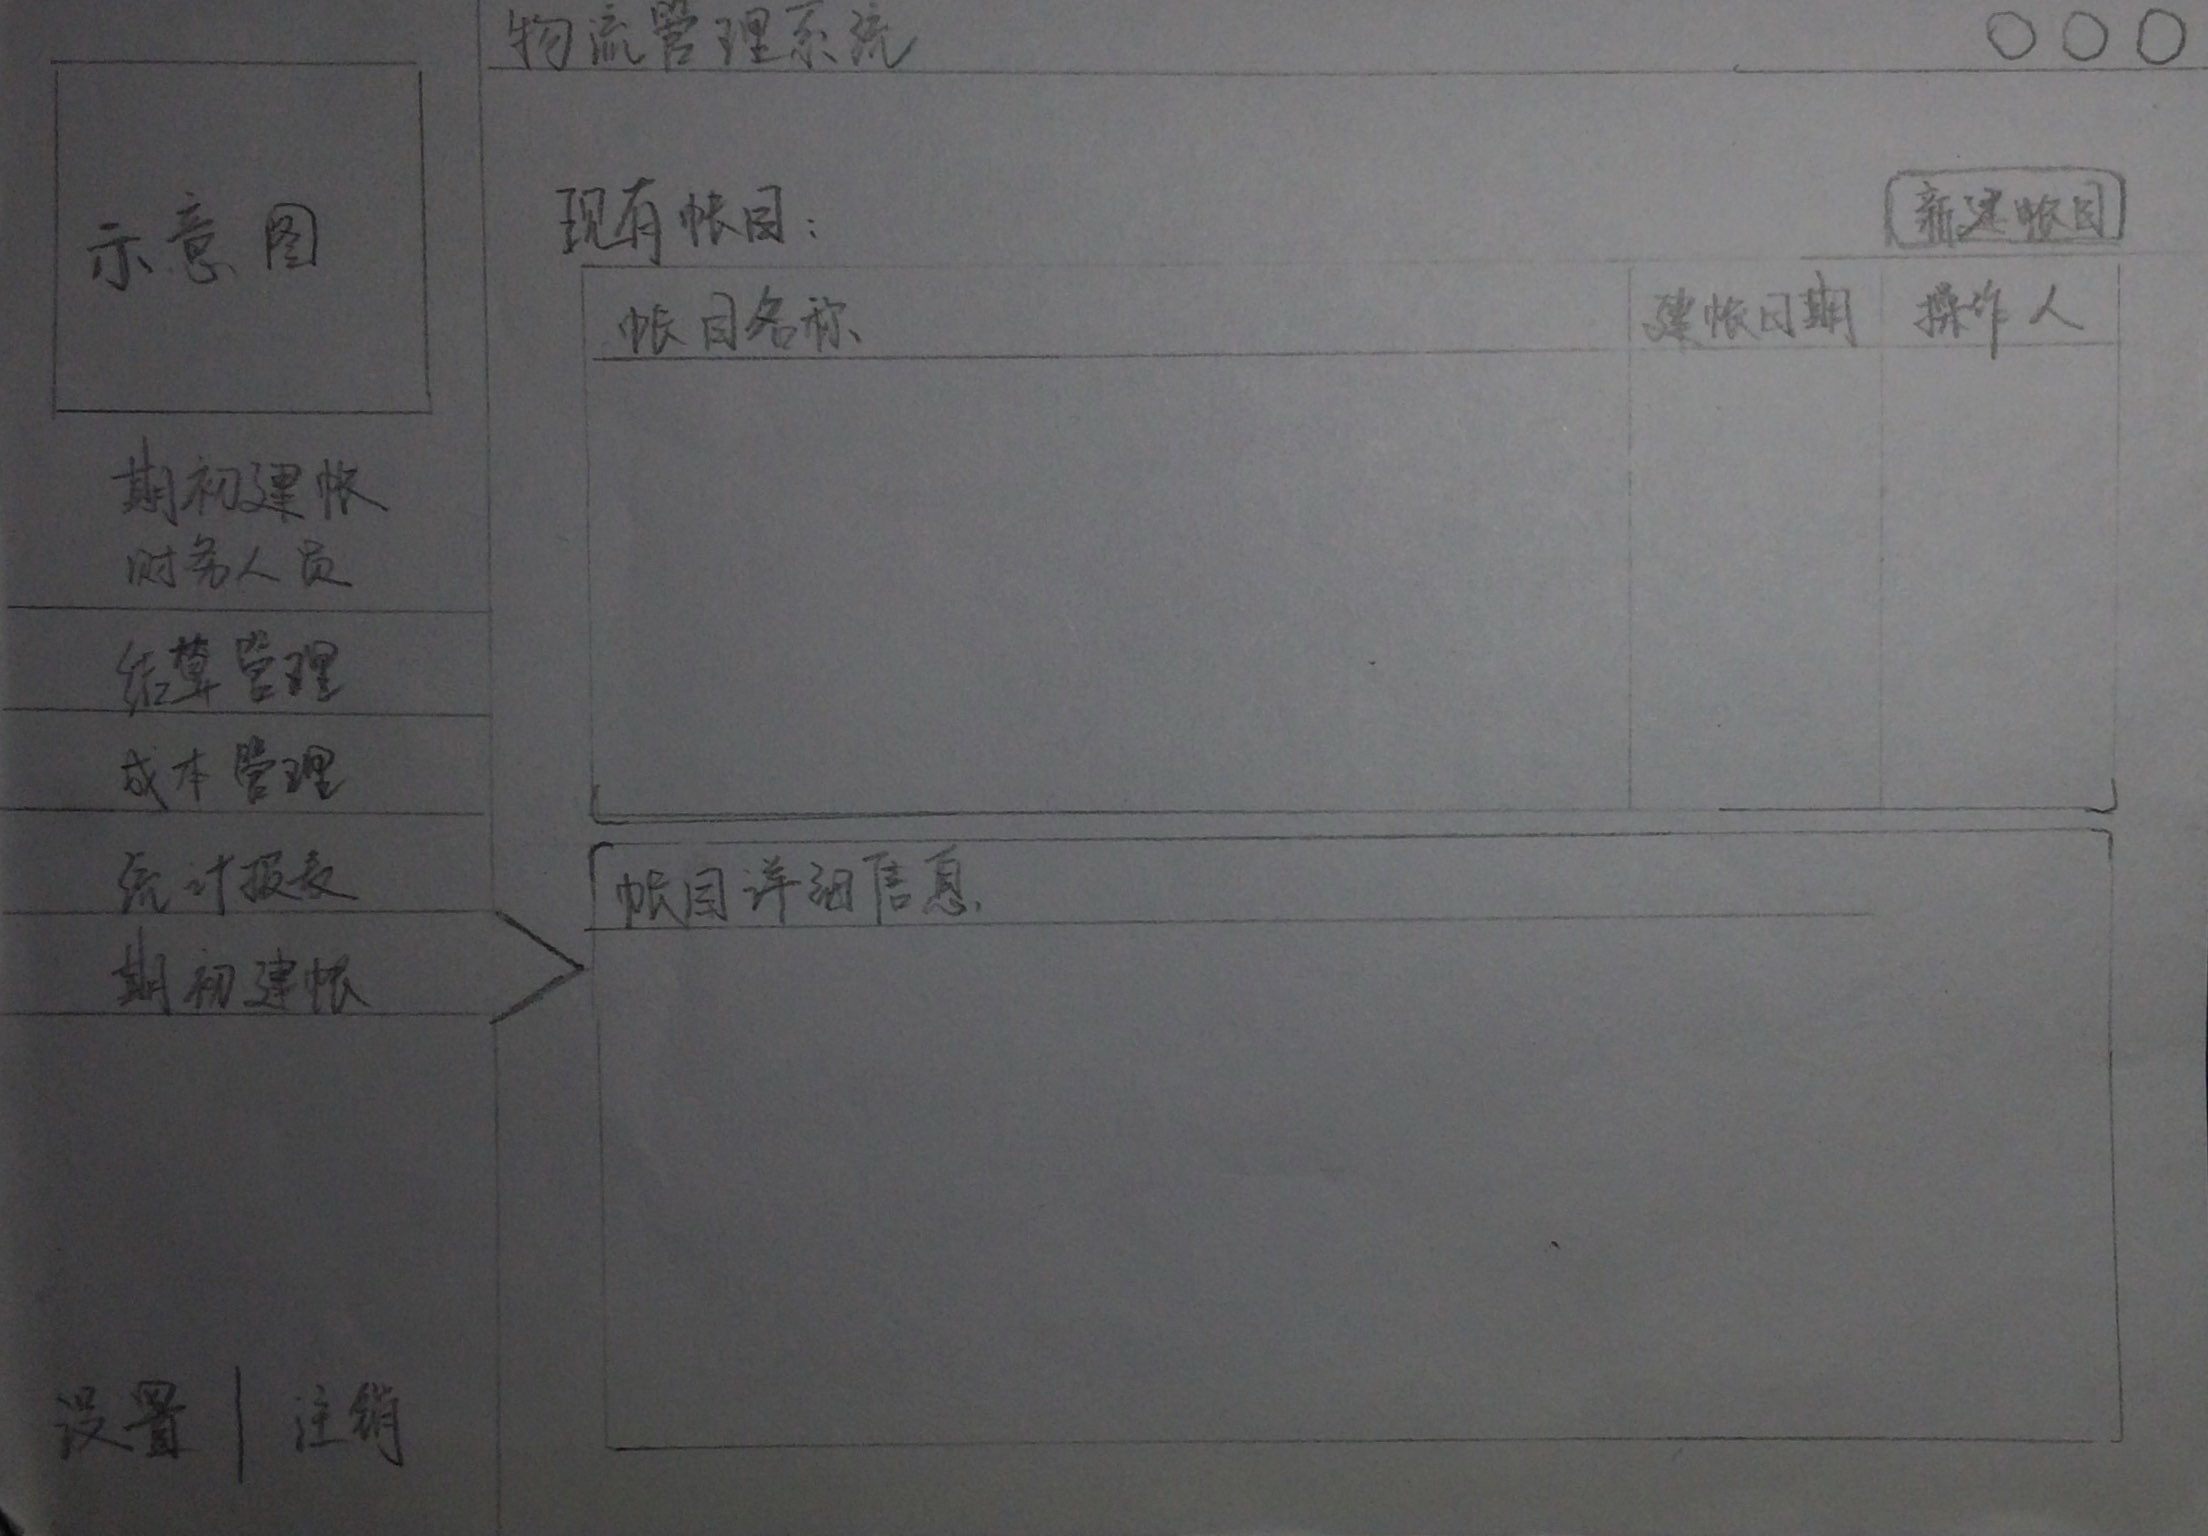 物流管理系统
示意图
期初建帐
财务人员
结算管理
成本管理
统计报表
期初建帐
设置 | 注销
现有帐目：
新建帐目
帐目名称 建帐日期 操作人
帐目详细信息